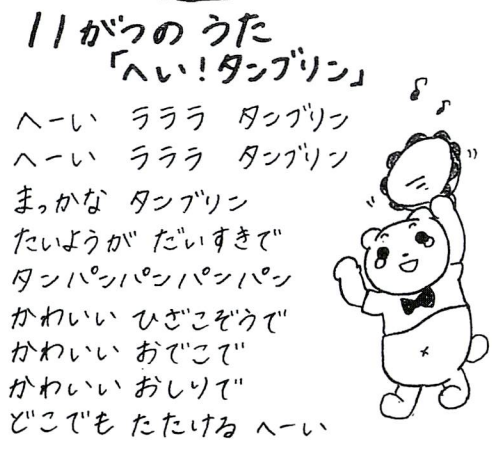 11がつの うた
「へい!タンブリン」
へーい ラララ タンブリン
へーい ラララ タンブリン
まっかな タンブリン
たいようが だいすきで
タンパンパンパンパン
かわいい ひざこぞうで
かわいい おでこで
かわいい おしりで
どこでも たたける へーい